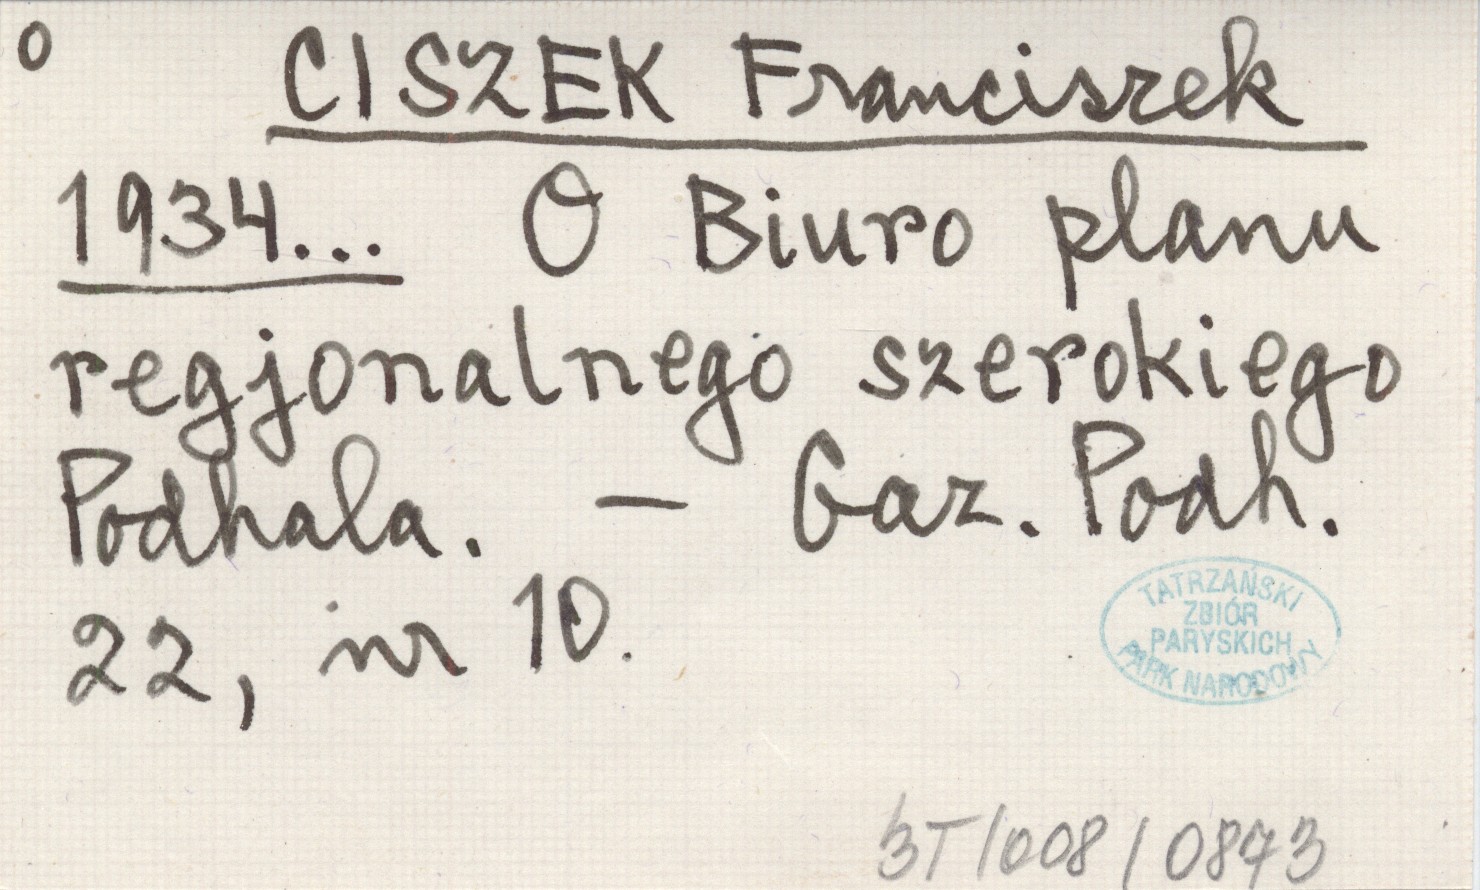 o
CISZEK Franciszek
1934... O Biuro planu
regjonalnego szerokiego
Podhala. — Gaz. Podh.
22, nr 10.
TATRZAŃSKI
ZBIÓR
PARYSKICH
PARK NARODOWY
3T/008/0873